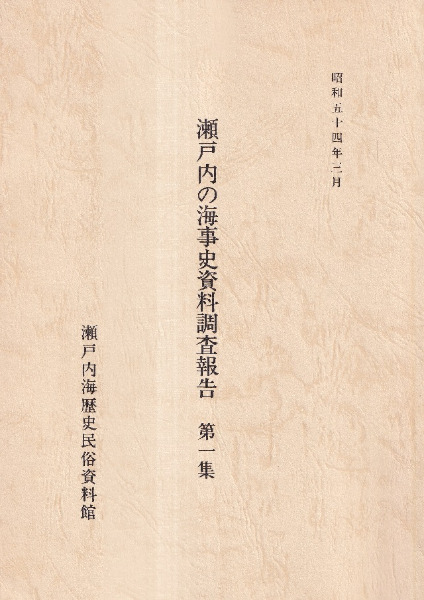 昭和五十四年三月
瀬戸内の海事史資料調査報告　第一集
瀬戸内海歴史民俗資料館